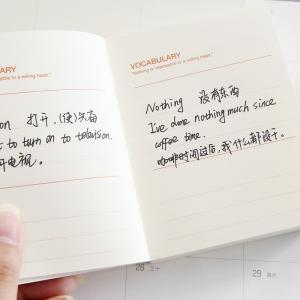 ARY
ble to a willing heart."
on 打开、(使)兴奋
t to turn on to television.
开电视。
VOCABULARY
"Nothing is impossible to a willing heart."
Nothing 没有东西
I've done nothing much since
coffee time.
咖啡时间过后,我什么都没干。
28 三十
29